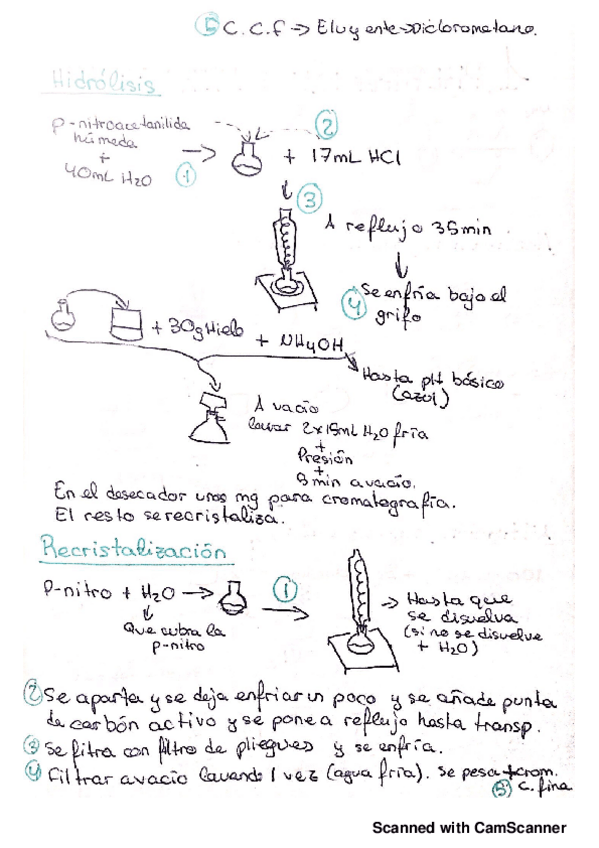 ⑤ C.C.F → Eluyente → Diclorometano.
Hidrólisis
p-nitroacetanilida
húmeda
+
40mL H2O ①
②
+ 17mL HCl
③
A reflujo 35min
④ Se enfría bajo el
grifo
+ 30g Hielo + NH4OH
Hasta pH básico
(azul)
A vacío
lavar 2x15mL H2O fría
+
Presión
+
min a vacío.
En el desecador unos mg para cromatografía.
El resto se recristaliza.
Recristalización
P-nitro + H2O → ①
Que cubra la
p-nitro
→ Hasta que
se disuelva
(si no se disuelve
+ H2O)
② Se aparta y se deja enfriar un poco y se añade punta
de carbón activo y se pone a reflujo hasta transp.
③ Se filtra con filtro de pliegues y se enfría.
④ Filtrar a vacío lavando 1 vez (agua fría). Se pesa + crom.
⑤ C. fina
Scanned with CamScanner